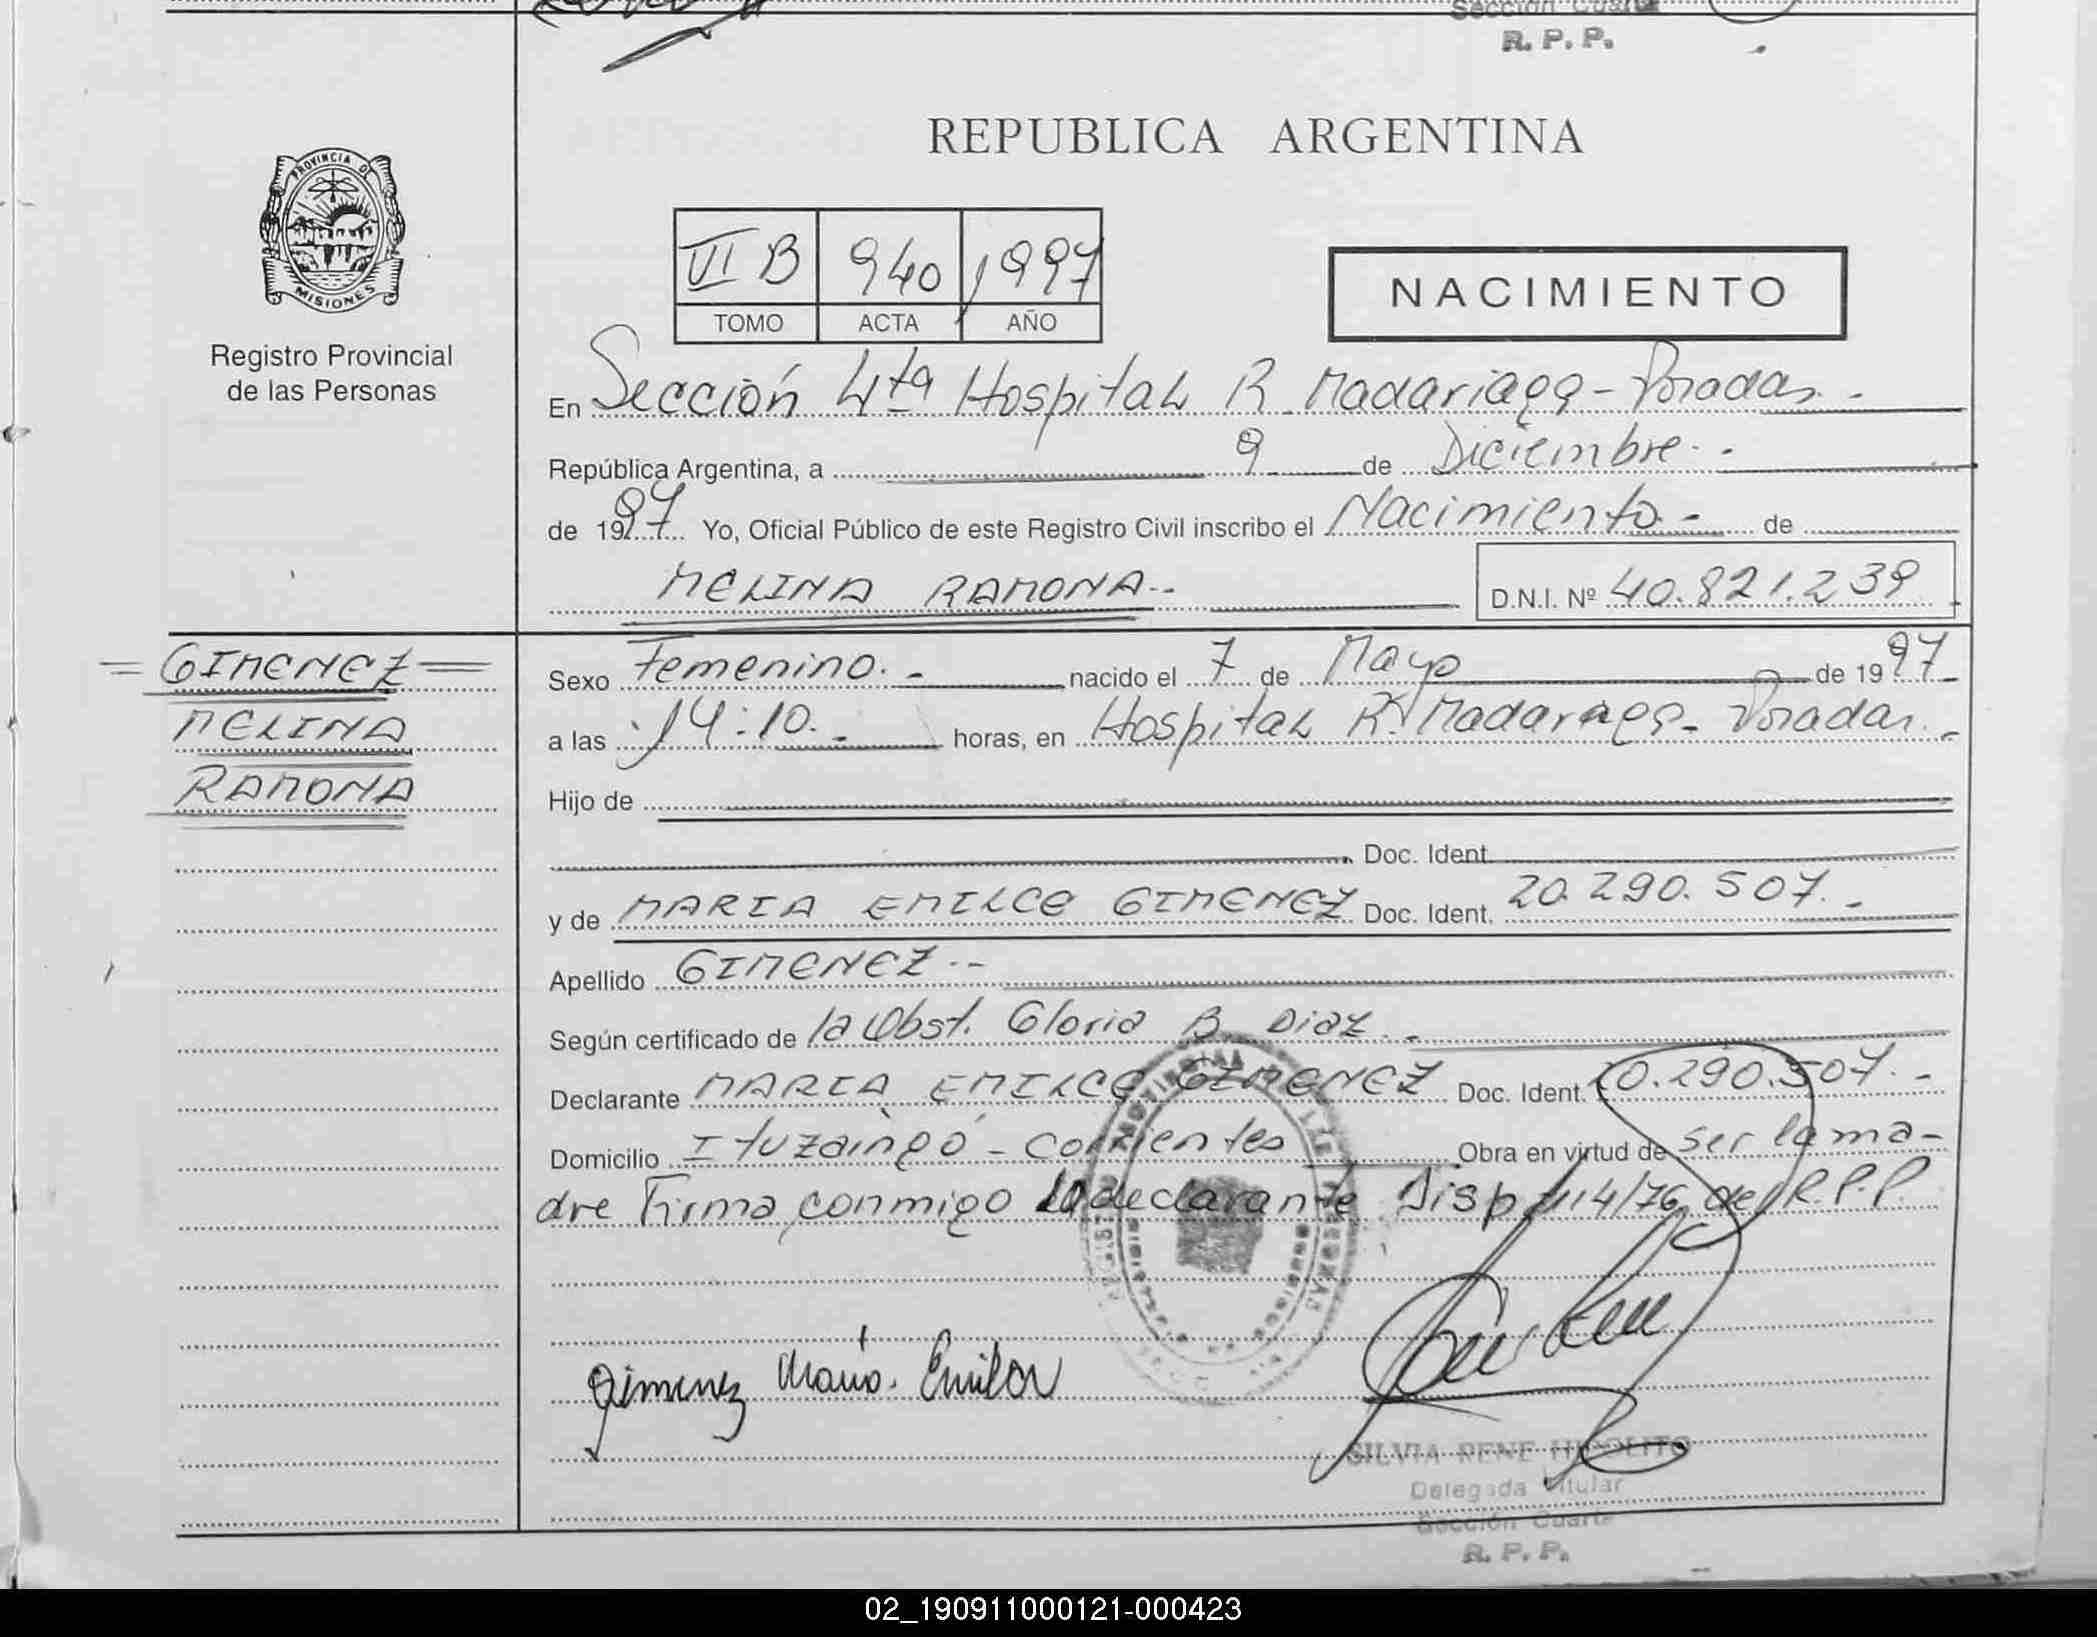 Sección Cuarta
R. P. P.
REPUBLICA ARGENTINA
PROVINCIA DE
MISIONES
Registro Provincial
de las Personas
VI B 940 1997
TOMO ACTA AÑO
NACIMIENTO
En Sección 4ta Hospital R. Madariaga - Posadas. -
República Argentina, a 9 de Diciembre. -
de 1997 Yo, Oficial Público de este Registro Civil inscribo el Nacimiento - de
MELINA RAMONA. - D.N.I. Nº 40.821.239
= GIMENEZ =
MELINA
RAMONA
Sexo Femenino. - nacido el 7 de Mayo de 1997
a las 14:10. - horas, en Hospital R. Madaraga - Posadas. -
Hijo de
Doc. Ident.
y de MARIA EMILCE GIMENEZ Doc. Ident. 20.290.507. -
Apellido GIMENEZ. -
Según certificado de la Obst. Gloria B. Diaz. -
Declarante MARIA EMILCE GIMENEZ Doc. Ident. 20.290.507. -
Domicilio Ituzaingó - Corrientes Obra en virtud de ser la ma-
dre Firma conmigo la declarante Disp 114/76 del R.P.P.
Gimenez Maria Emilce
SILVIA RENE HIPOLITO
Delegada Titular
Sección Cuarta
R. P. P.
02_190911000121-000423